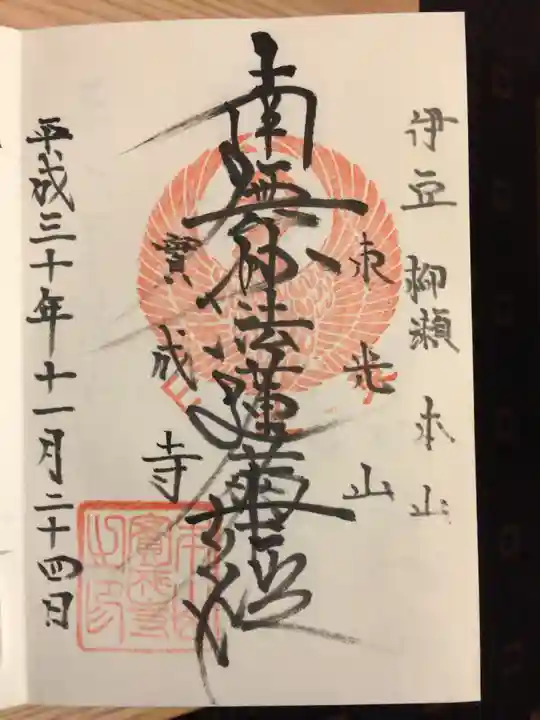 伊豆 柳瀬 本山
東光山
南無妙法蓮華経
實成寺
平成三十年十一月二十四日